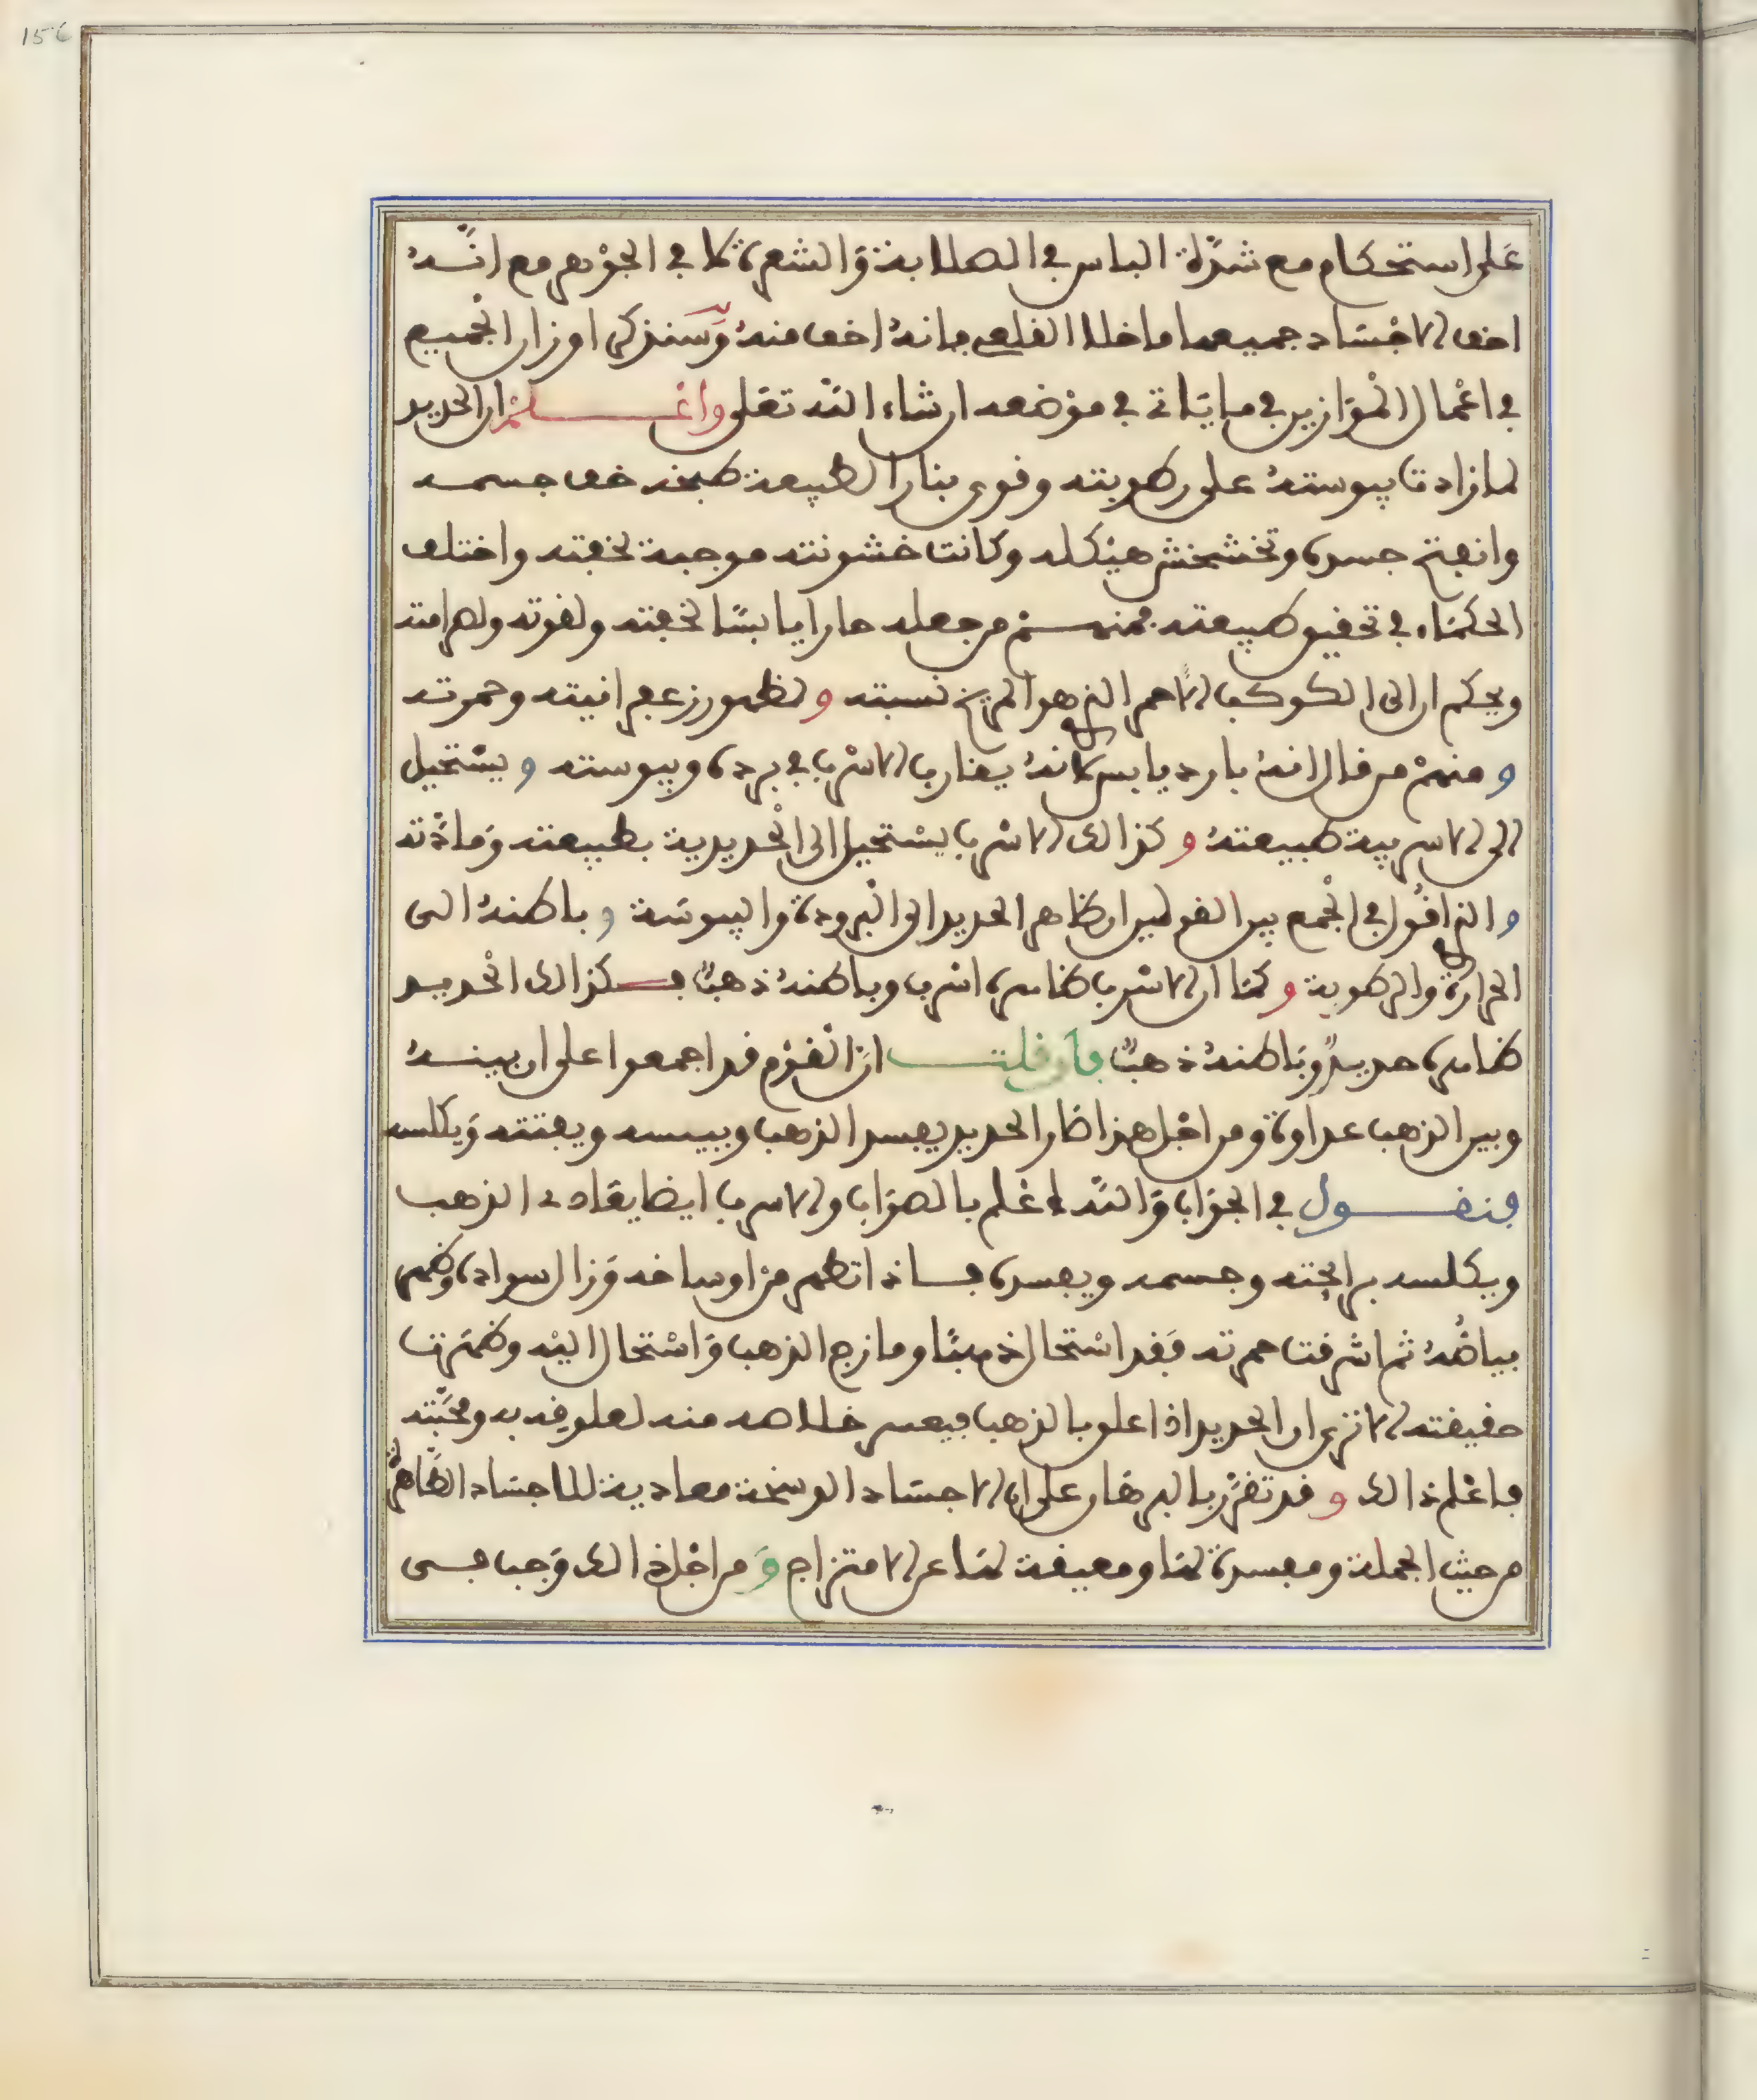 156
على استحكام مع شدّة الباس في الصلابة والشعرة كما في الجوهر مع انّه
اخف الاجساد جميعها ما خلا القلعي فانه اخف منه وسنذكر اوزان الجميع
في اعمال الموازين في ما ياتي في موضعه ان شاء الله تعلى واعلم ان الحديد
لما زادت يبوسته على رطوبته وقوى بنار الطبيعة طبخه خف جسمه
وانفتح جسده وتخشخش هيكله وكانت خشونته موجبة لخفته واختلف
الحكماء في تحقيق طبيعته فمنهم من جعله حارا يابسًا لخفته ولقوته ولصرامته
ويحكم ان الى الكوكب الاحمر الذي هو المريخ نسبته ولظهور زعفرانيته وحمرته
ومنهم من قال انه بارد يابس كانه يقارب الاسرب في برده ويبوسته ويستحيل
الى الاسربية طبيعته وكذالك الاسرب يستحيل الى الحديدية بطبيعته ومادّته
والذي اقول في الجمع بين القولين ان ظاهر الحديد الى البرودة واليبوسة وباطنه الى
الحرارة والرطوبة وكما ان الاسرب ظاهره اسرب وباطنه ذهبٌ فكذالك الحديد
ظاهره حديدٌ وباطنه ذهبٌ فان قلت انّ القوم قد اجمعوا على ان بينه
وبين الذهب عداوة ومن اجل هذا صار الحديد يفسد الذهب وييبسه ويفتته ويكلسه
فنقول في الجواب والله اعلم بالصواب والاسرب ايضا يعادى الذهب
ويكلسه برائحته وجسمه ويفسده فاذا تطهر من اوساخه وزال سواده وظهر
بياضه ثم اشرقت حمرته فقد استحال ذهبًا ومازج الذهب واستحال اليه وظهرت
حقيقته الا ترى ان الحديد اذا علق بالذهب فيعسر خلاصه منه لعلوقه به ومحبّته
فاعلم ذالك وقد تقرّر بالبرهان على ان الاجساد الوسخة معادية للاجساد الطاهرة
من حيث الجملة ومفسدة لها ومعيقة لها عن الامتزاج ومن اجل ذالك وجب في